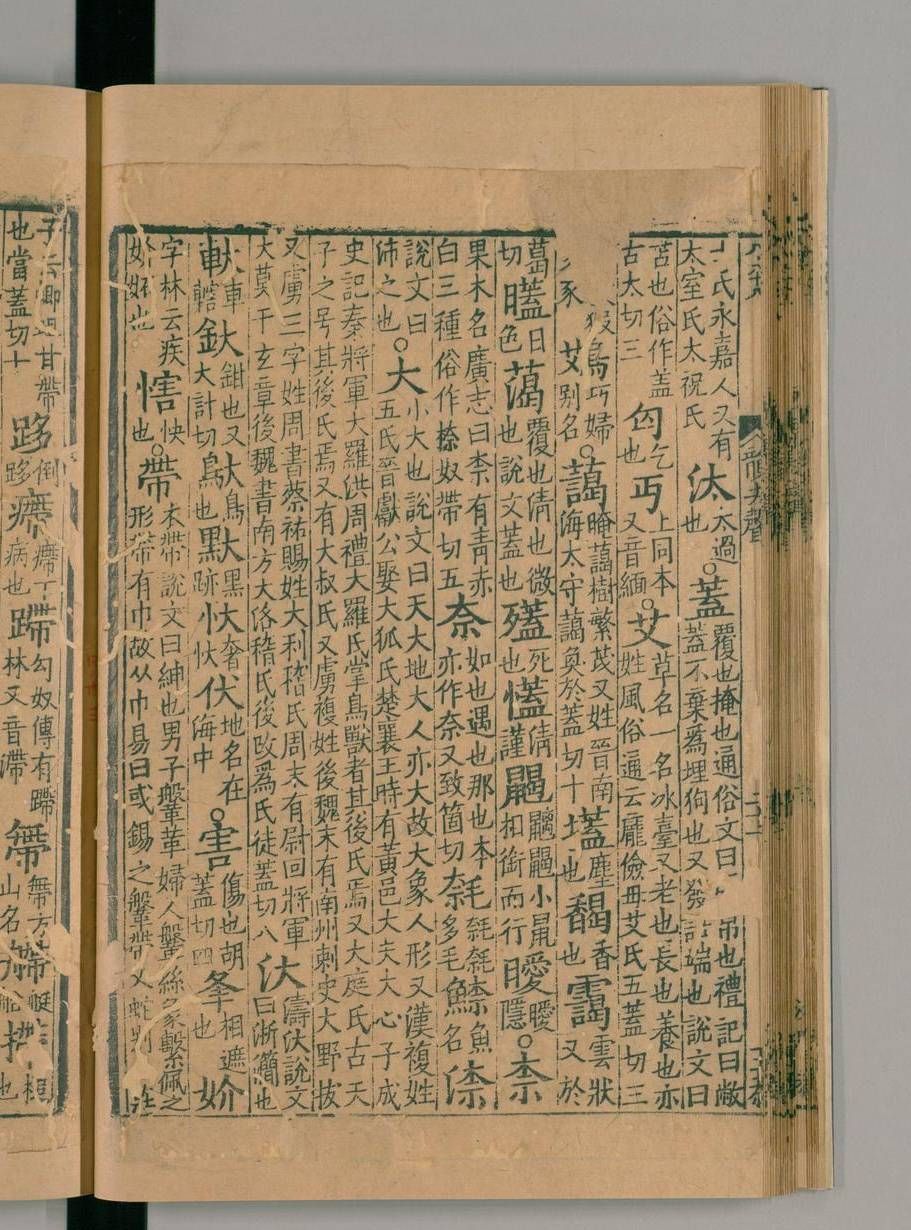 氏永嘉人又有太室氏太祝氏汰太過也○蓋覆也掩也通俗文曰吊也禮記曰敝蓋不棄爲埋狗也又發語端也說文曰
苫也俗作盖古太切三匃乞也丐上同本又音緬○艾草名一名冰臺又老也長也養也亦姓風俗通云龐儉母艾氏五蓋切三
豙鳥巧婦別名○藹晻藹樹繁茂又姓晉南海太守藹奐於蓋切十壒塵也馤香也靄雲狀又於
葛切日色覆也清也微也說文蓋也死也清謹小鼠相銜而行曖曖隱○柰
果木名廣志曰柰有青赤白三種俗作㮈奴帶切五奈如也遇也那也本亦作奈又致箇切多毛魚名
說文曰之也○大小大也說文曰天大地大人亦大故大象人形又漢複姓五氏晉獻公娶大狐氏楚襄王時有黃邑大夫大心子成
史記秦將軍大羅洪周禮大羅氏掌鳥獸者其後氏焉又大庭氏古天子之号其後氏焉又有大叔氏又虜複姓後魏末有南州刺史大野拔
又虜三字姓周書蔡祐賜姓大利稽氏周末有尉回將軍大莫干玄章後魏書南方大洛稽氏後改爲氏徒蓋切八汏濤汏說文曰淅𥳑也
軑車轄釱鉗也又大計切鳥也黑跡忕奢忕地名在海中○害傷也胡蓋切四夆相遮也妎
字林云疾妎妬也快也○帶本帶說文曰紳也男子鞶革婦人鞶絲象繫佩之形帶有巾故从巾易曰或錫之鞶帶又蛇別
甘帶也當蓋切十跢倒跢病也蹛匈奴傳有蹛林又音滯山名